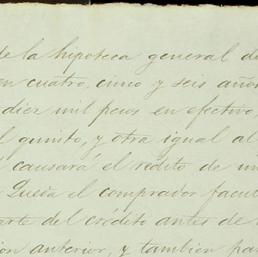 de la hipoteca general de
en cuatro, cinco y seis años
diez mil pesos en efectivo,
l quinto, y otra igual al
causará el rédito de un
Queda el comprador facul
arte del crédito antes de
ion anterior, y tambien pa